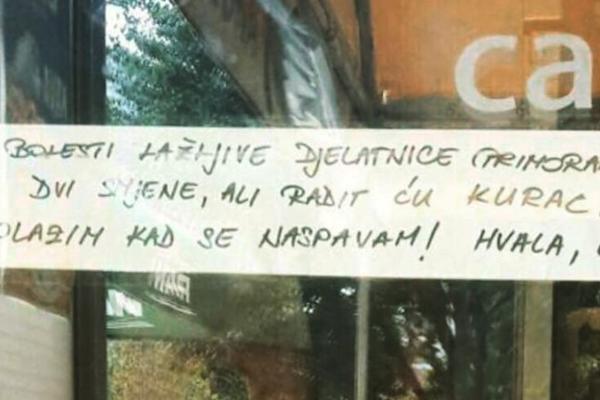 ca
BOLESTI LAŽLJIVE DJELATNICE (PRIMORA
DVI SMJENE, ALI RADIT ĆU KURAC
OLAZIM KAD SE NASPAVAM! HVALA,